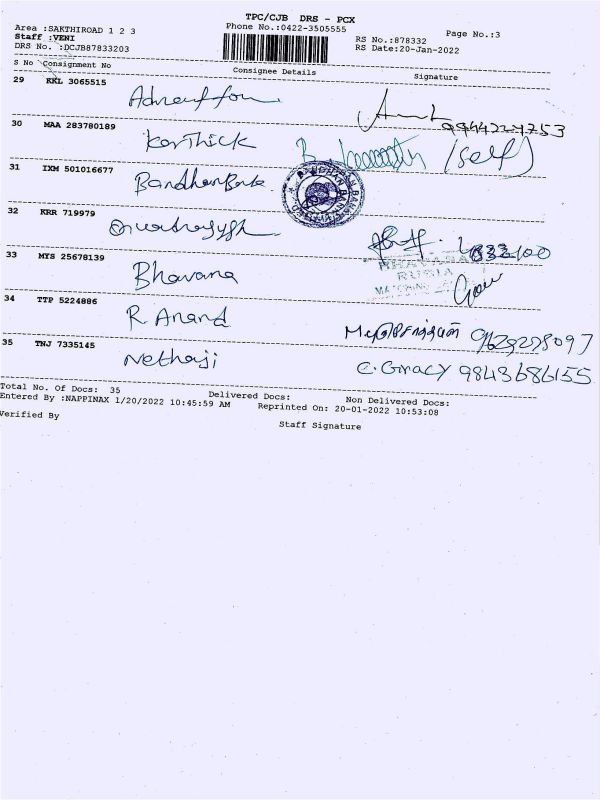 TPC/CJB DRS - PCX
Area :SAKTHIROAD 1 2 3 Phone No.:0422-3505555 Page No.:3
Staff :VENI RS No.:878332
DRS No. :DCJB87833203 RS Date:20-Jan-2022
S No Consignment No Consignee Details Signature
29 KKL 3065515
9944227753
30 MAA 283780189 Karthick (self)
31 IXM 501016677 Bandhan Bank
32 KRR 719979
33 MYS 25678139 Bhavana
34 TTP 5224886 R Anand 9629278097
35 TNJ 7335145 Nethaji C. Gracy 9843686155
Total No. Of Docs: 35 Delivered Docs: Non Delivered Docs:
Entered By :NAPPINAX 1/20/2022 10:45:59 AM Reprinted On: 20-01-2022 10:53:08
Verified By Staff Signature